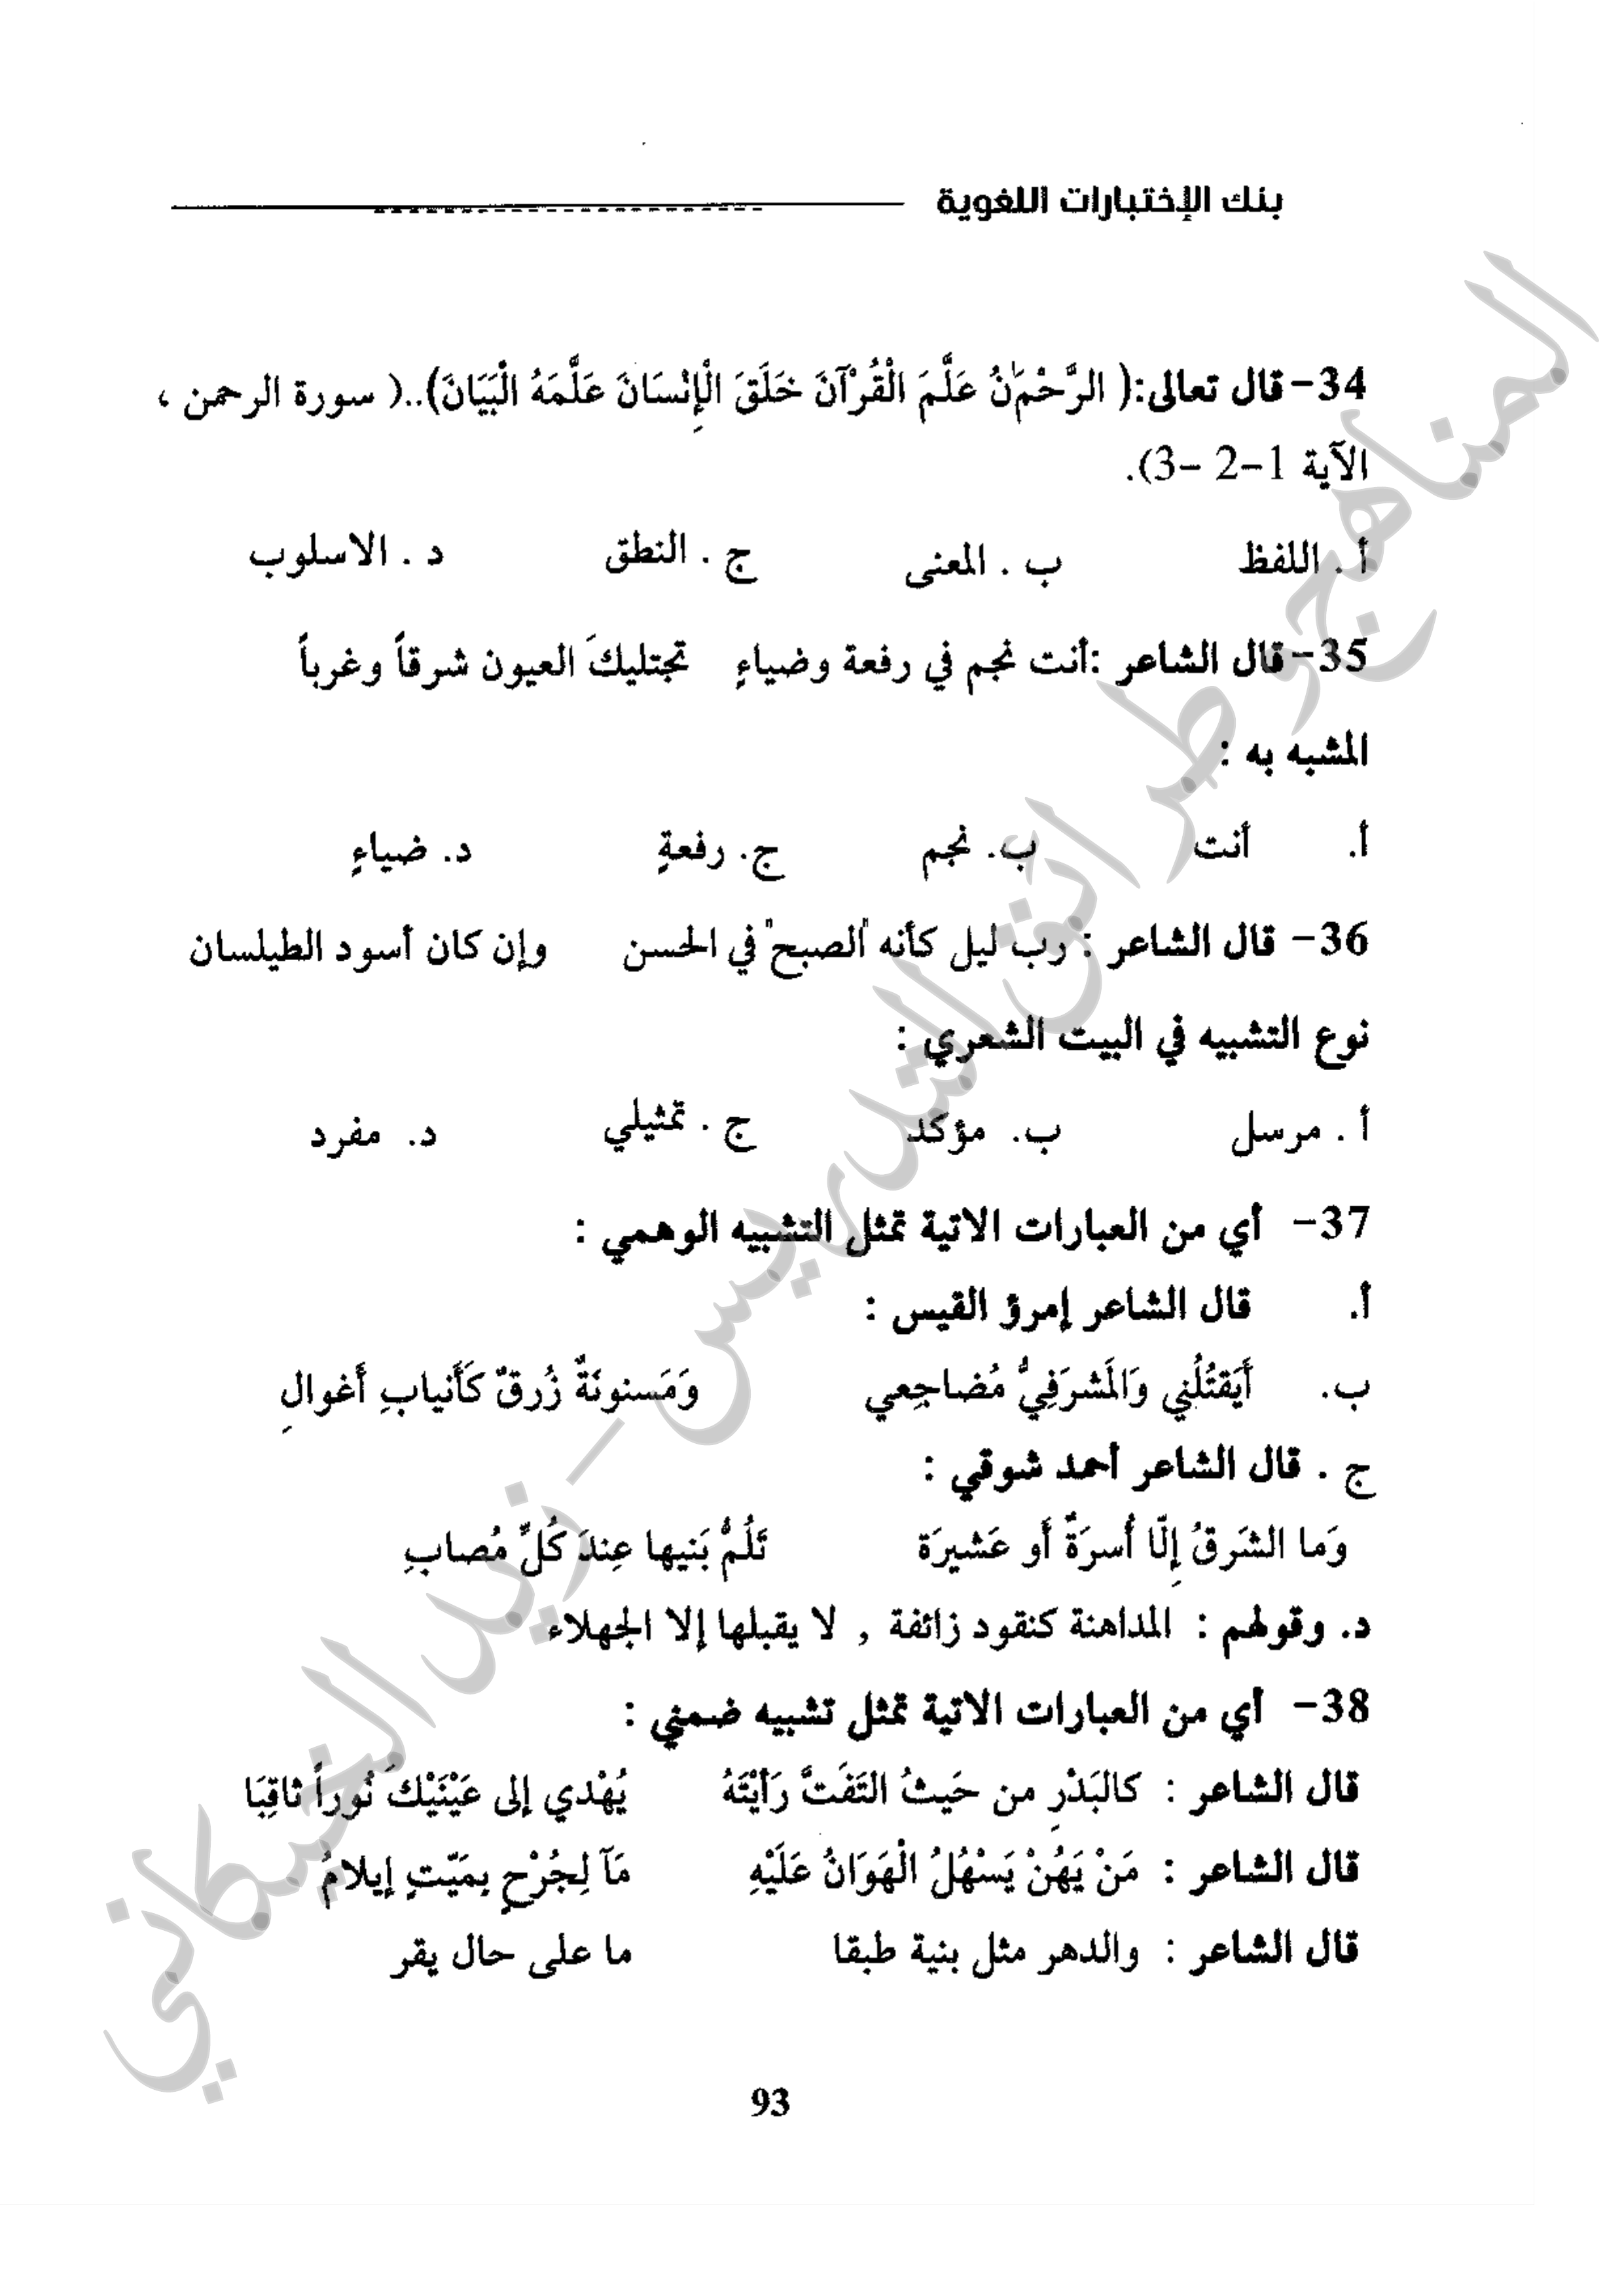 بنك الإختبارات اللغوية
34- قال تعالى:( الرَّحْمَٰنُ عَلَّمَ الْقُرْآنَ خَلَقَ الْإِنْسَانَ عَلَّمَهُ الْبَيَانَ)..( سورة الرحمن ،
الآية 1-2 -3).
أ . اللفظ ب . المعنى ج . النطق د . الاسلوب
35- قال الشاعر :أنت نجم في رفعة وضياءٍ تجتليكَ العيون شرقاً وغرباً
المشبه به :
أ. أنت ب. نجم ج. رفعةٍ د. ضياءٍ
36- قال الشاعر : رب ليل كأنه "الصبح" في الحسن وإن كان أسود الطيلسان
نوع التشبيه في البيت الشعري :
أ . مرسل ب. مؤكد ج . تمثيلي د. مفرد
37- أي من العبارات الاتية تمثل التشبيه الوهمي :
أ. قال الشاعر إمرؤ القيس :
ب. أَيَقتُلُنِي وَالمَشرَفِيُّ مُضاجِعي وَمَسنونَةٌ زُرقٌ كَأَنيابِ أَغوالِ
ج . قال الشاعر أحمد شوقي :
وَما الشَرقُ إِلّا أُسرَةٌ أَو عَشيرَة تَلُمُّ بَنيها عِندَ كُلِّ مُصابِ
د. وقولهم : المداهنة كنقود زائفة , لا يقبلها إلا الجهلاء
38- أي من العبارات الاتية تمثل تشبيه ضمني :
قال الشاعر : كالبَدْرِ من حَيثُ التَفَتَّ رَأَيْتَهُ يُهْدي إلى عَيْنَيْكَ نُوراً ثاقِبَا
قال الشاعر : مَنْ يَهُنْ يَسْهُلُ الْهَوَانُ عَلَيْهِ مَآ لِجُرْحٍ بِمَيّتٍ إيلامُ
قال الشاعر : والدهر مثل بنية طبقا ما على حال يقر
93
المناهج وطرائق التدريس - زيد الخيكاني